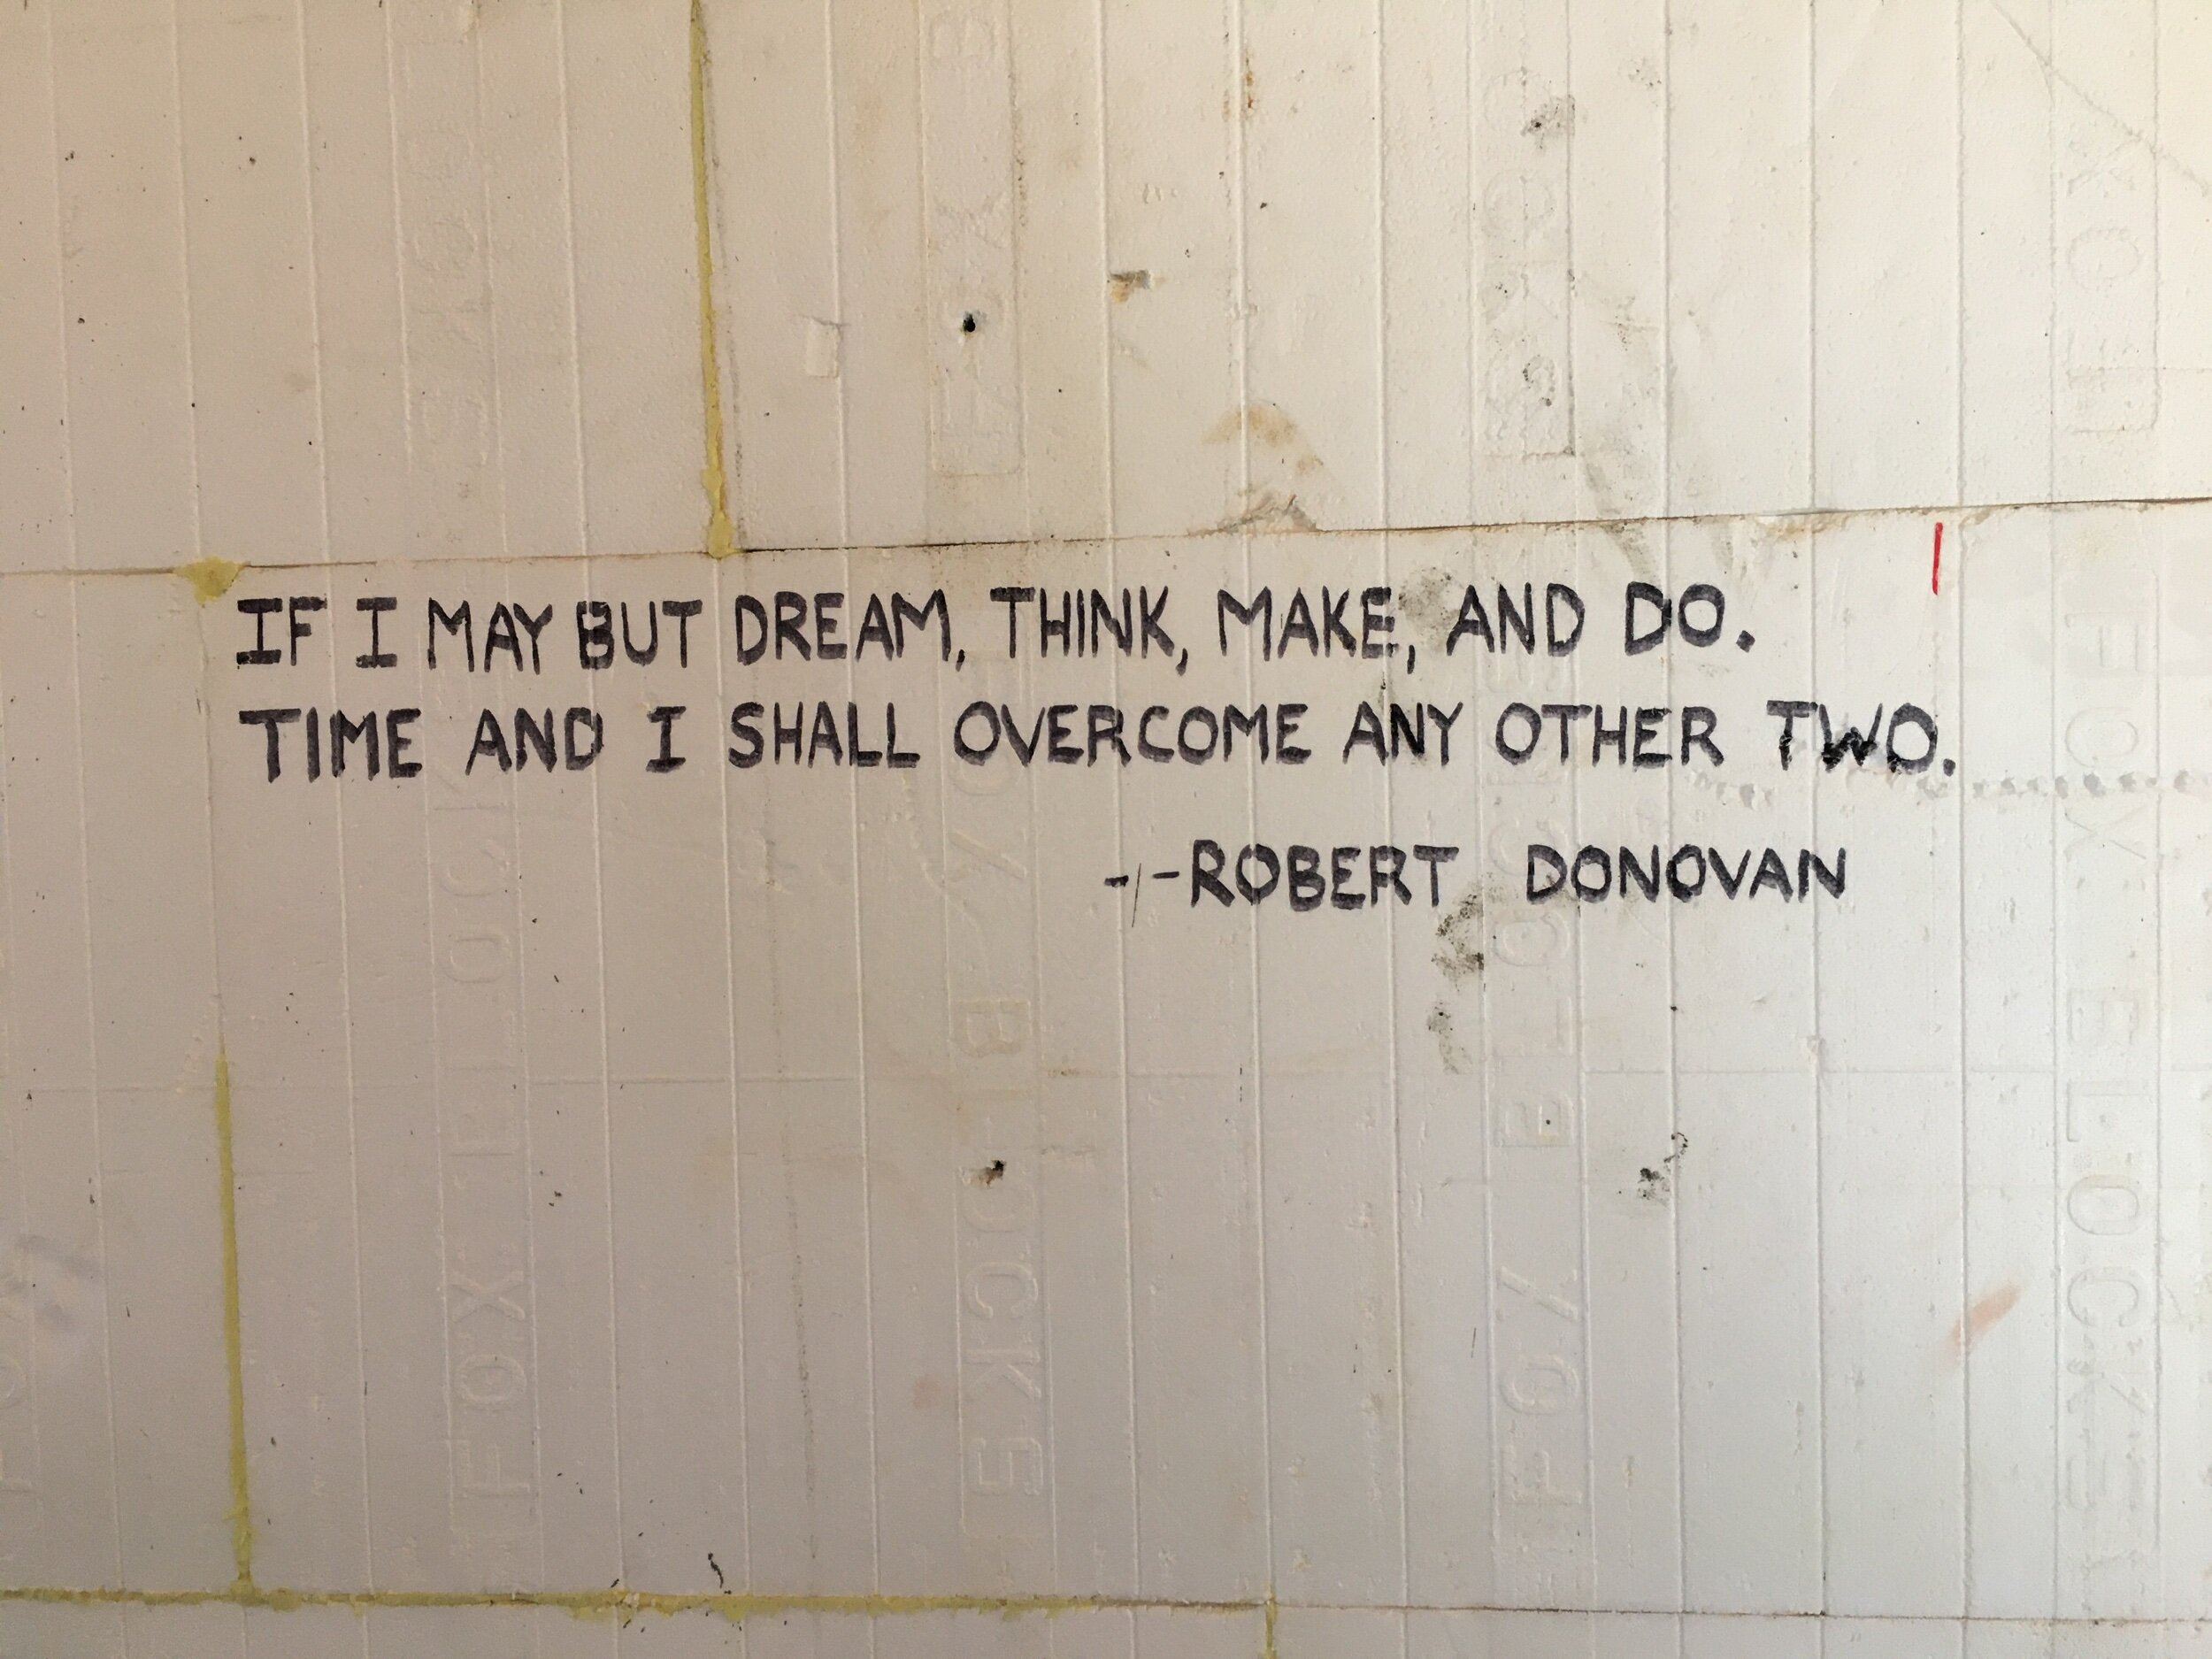 IF I MAY BUT DREAM, THINK, MAKE, AND DO.
TIME AND I SHALL OVERCOME ANY OTHER TWO.
--ROBERT DONOVAN
FOX BLOCKS
FOX BLOCKS
FOX BLOCK
FOX BLOCKS
FOX